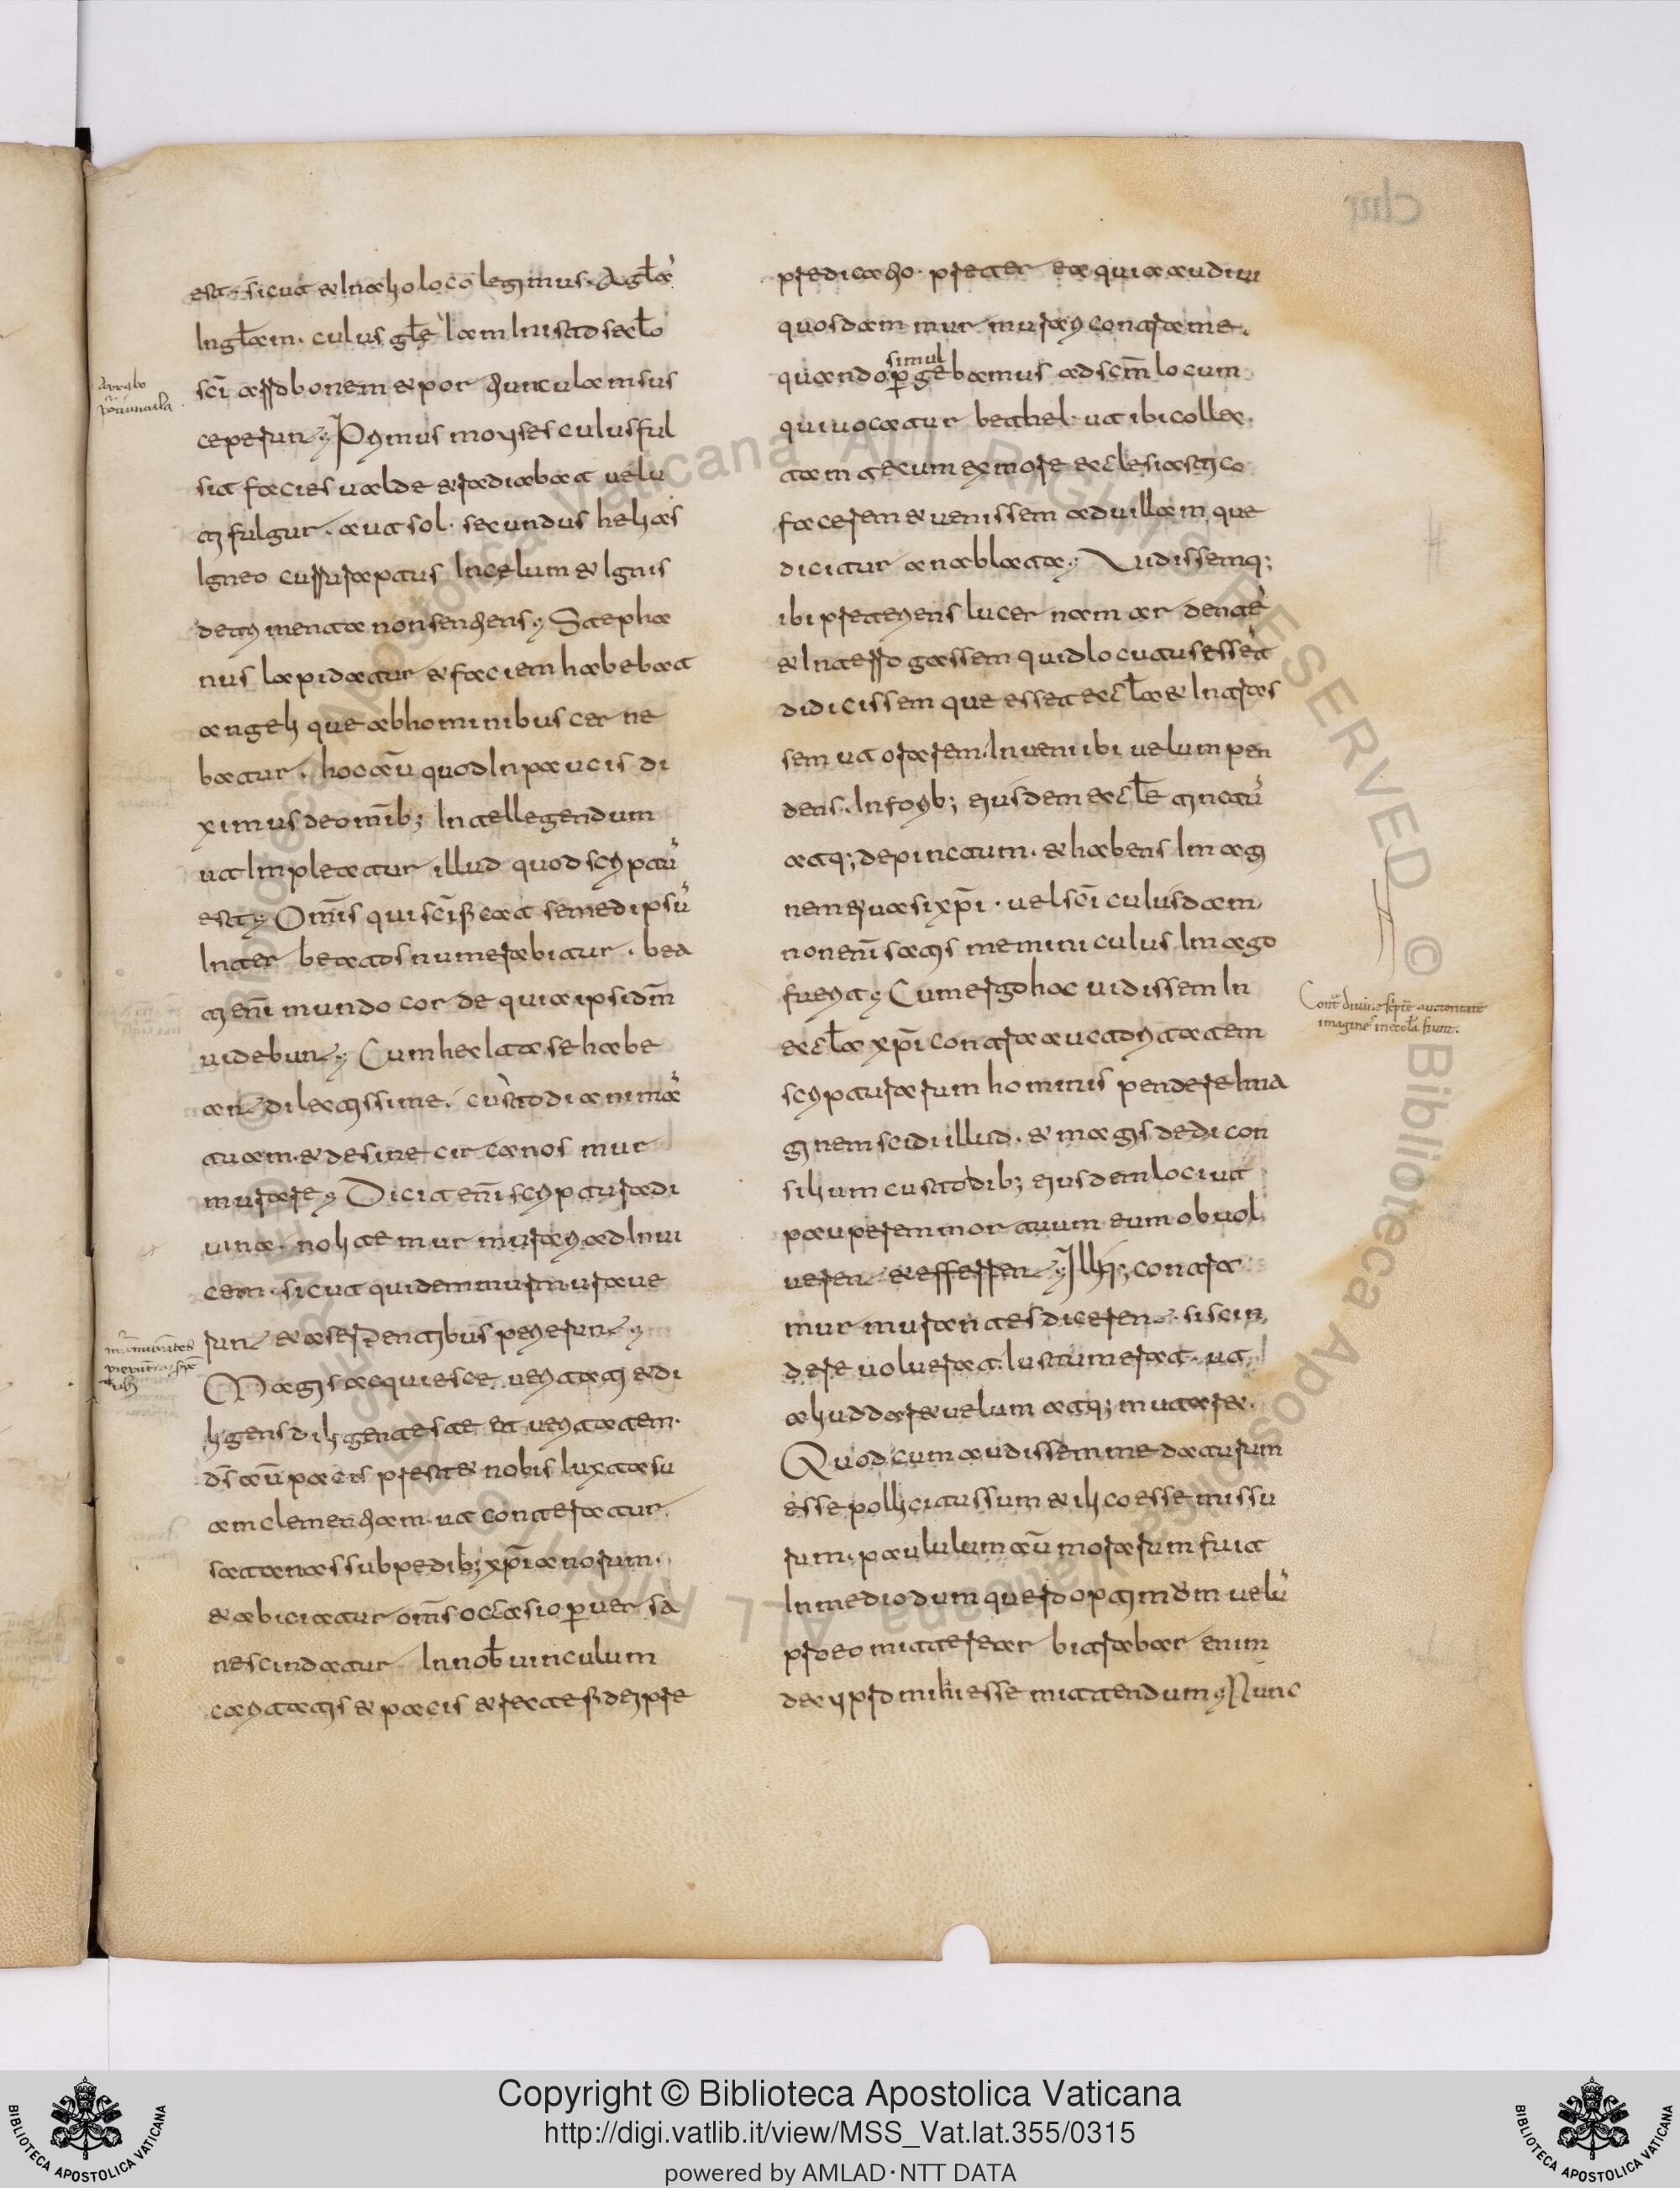 est. sicut & In alio loco legimus. A gła
In głam. cuius głe łam Inistd sało
sci arrabonem & portiunculam sus
ceperunt; Primus moyses cuius ful
sit facies ualde & radiabat uelu
ti fulgur. aut sol. secundus helias
Igneo curru raptus In celum & Ignis
detrimenta non sentiens; Stepha
nus lapidatur & faciem habebat
angeli que ab hominibus cer ne
batur. hoc aū quod In paucis di
ximus de omīb; Intellegendum
ut Impleatur illud quod scriptū
est; Omīs qui scīficat semedipsū
Inter beatos numerabitur. bea
ti enī mundo cor de quia ipsi dm̄
uidebunt; Cum hec Ita se habe
ant dilectissime. custodi animā
tuam. & desine cir ca nos mur
murare; Dicit enī scriptura di
uina. nolite mur murari ad Inui
cem. sicut quidem murmuraue
runt & a serpentibus perierunt;
Magis acquiesce ueritati & di
ligens diligentes te et ueritatem.
ds aū pacis prestet nobis Iuxta su
am clementiam. ut conteratur
satanas sub pedib; xp̄ianorum.
& abiciatur omīs occasio peruer sa
ne scindatur In nob uinculum
caritatis & pacis & recte fidei pre
Arrabo
portiuncula
murmurantes
perierunt a serpē
tib;
predicatio. preter ea quia audiui
quosdam mur murari contra me.
quando simul pergebamus ad scm̄ locum
qui uocatur bethel. ut ibi collec
tam tecum ex more ecclesiastico
facerem & uenissem ad uillam que
dicitur anablata; Uidissemq;
ibi preteriens lucer nam ar dente
& Interrogassem quid locutus esset
didicissem que esset eccła & Intras
sem ut orarem. Inueni ibi uelum pen
dens. In forib; eiusdem eccłe tinctū
atq; depinctum. & habens Imagi
nem quasi xp̄i. uel sci cuiusdam
non enī satis memini cuius Imago
fuerit; Cum ergo hoc uidissem In
eccła xp̄i contra auctoritatem
scripturarum hominis pendere Ima
ginem scidi illud. & magis dedi con
silium custodib; eiusdem loci ut
pauperem mor tuum eum obuol
uerent & efferrent; Illiq; contra
mur murantes dicerent. si scin
dere uoluerat. Iustum erat. ut
aliud daret uelum atq; mutaret.
Quod cum audissem me daturum
esse pollicitus sum & ilico esse missu
rum. paululum aū morarum fuit
In medio dum quero optimum uelū
pro eo mittere ar bitrabar enim
de cypro mihi esse mittendum; Nunc
Contra diuine scripture auctoritatē
imagines in eccła fiunt.
Copyright © Biblioteca Apostolica Vaticana
http://digi.vatlib.it/view/MSS_Vat.lat.355/0315
powered by AMLAD·NTT DATA